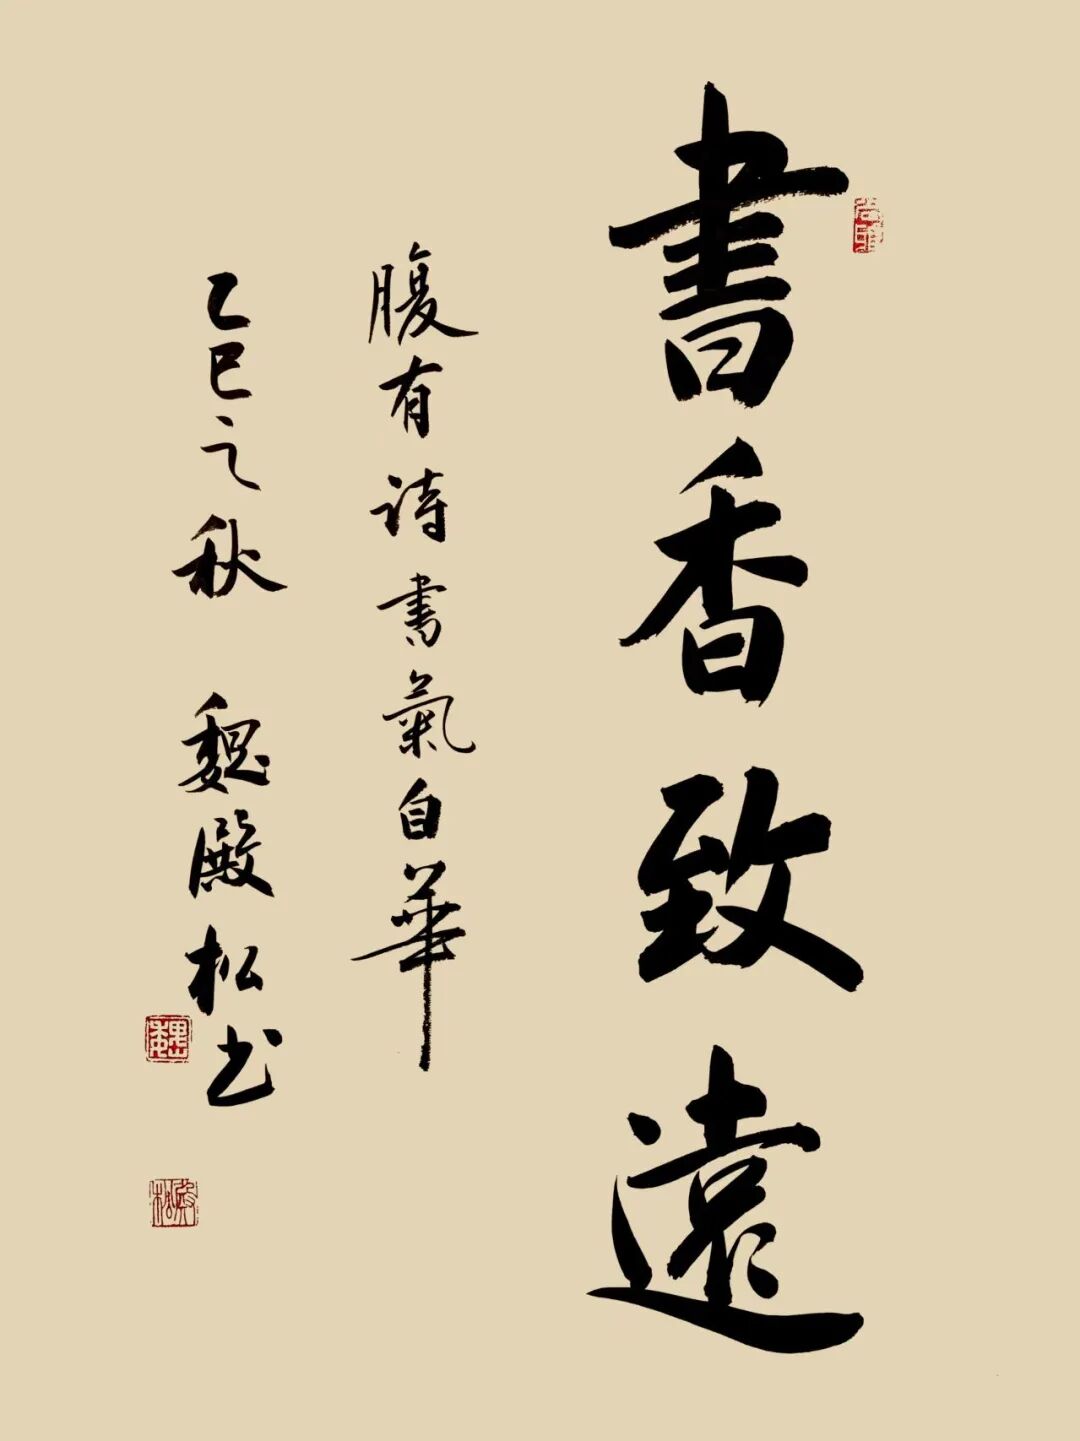 書香致遠
腹有诗書氣自華
乙巳之秋 魏殿松书
魏
殿松